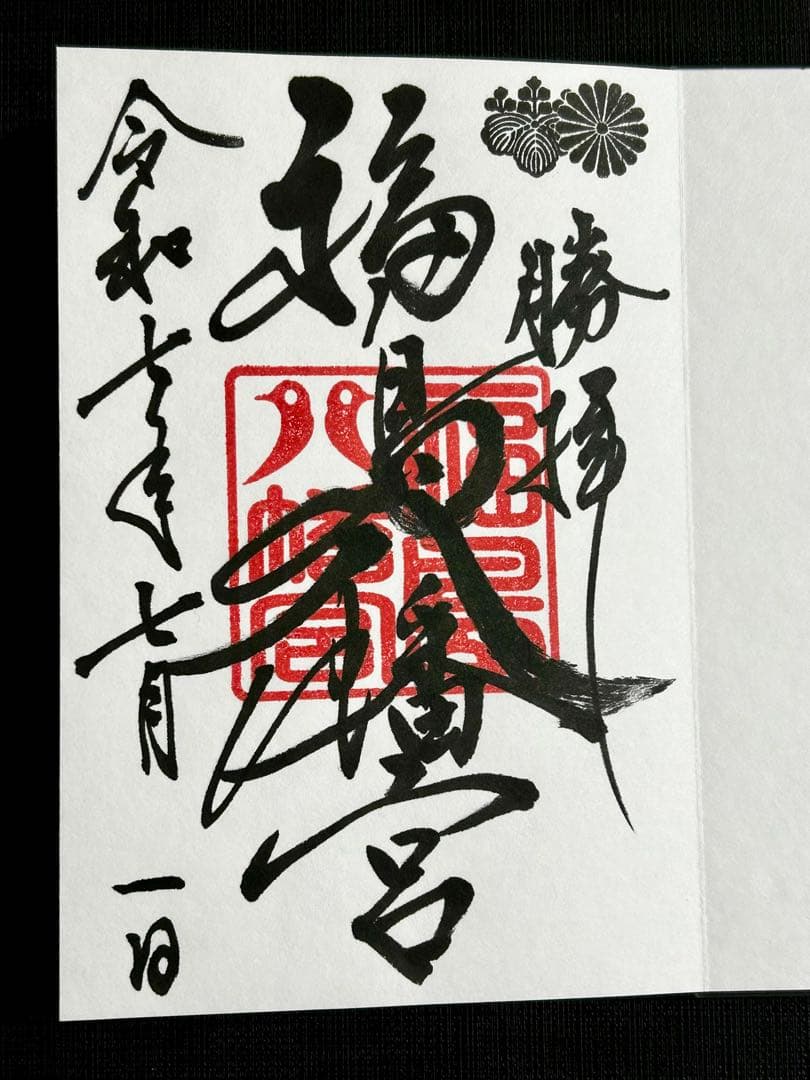 勝拝
福島八幡宮
令和七年七月一日
福島
八幡宮